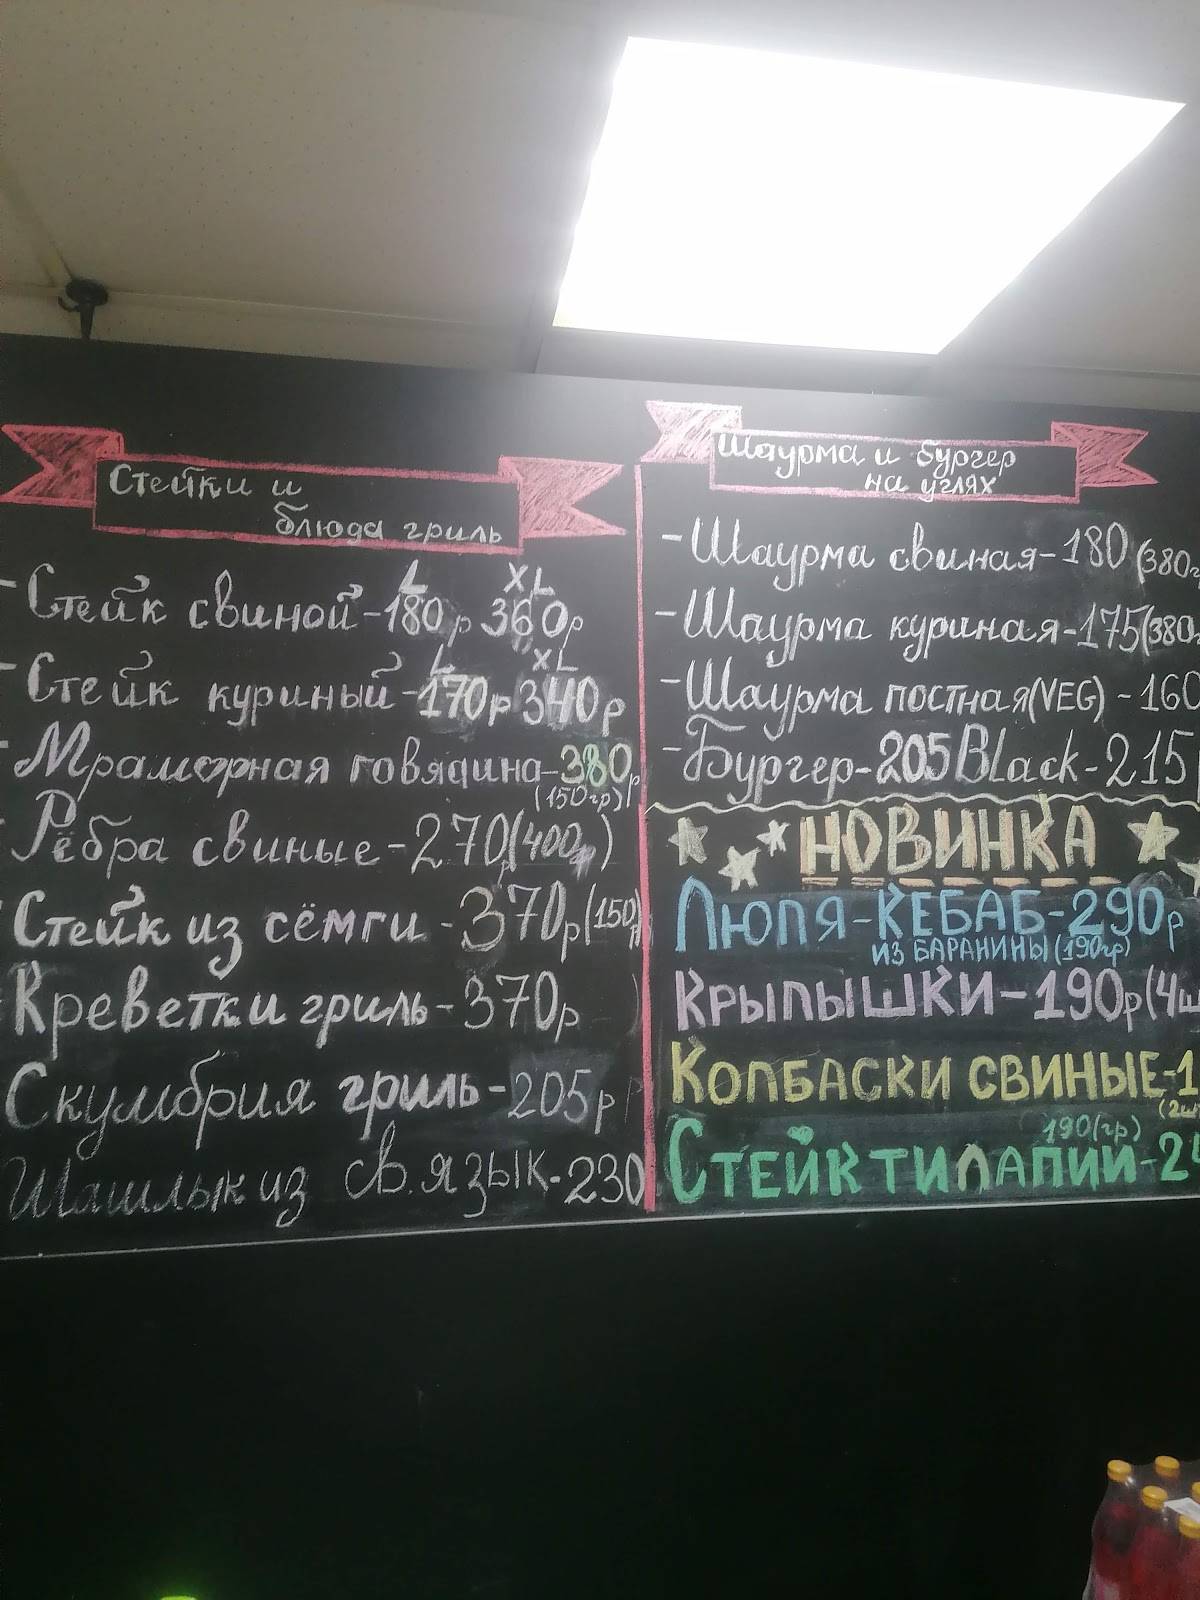 Стейки и
блюда гриль
L XL
- Стейк свиной - 180р 360р
L XL
- Стейк куриный - 170р 340р
- Мраморная говядина - 380р
(150гр)
Рёбра свиные - 270р (400)
Стейк из сёмги - 370р (150р)
Креветки гриль - 370р
Скумбрия гриль - 205р
Шашлык из св. язык - 230
Шаурма и бургер
на углях
- Шаурма свиная - 180 (380г
- Шаурма куриная - 175 (380
- Шаурма постная (VEG) - 160
- Бургер - 205 Black - 215
НОВИНКА
Люля-КЕБАБ - 290р
ИЗ БАРАНИНЫ (190гр)
Крылышки - 190р (4ш
Колбаски свиные - 1
(2шт
190(гр)
Стейк тилапии - 24